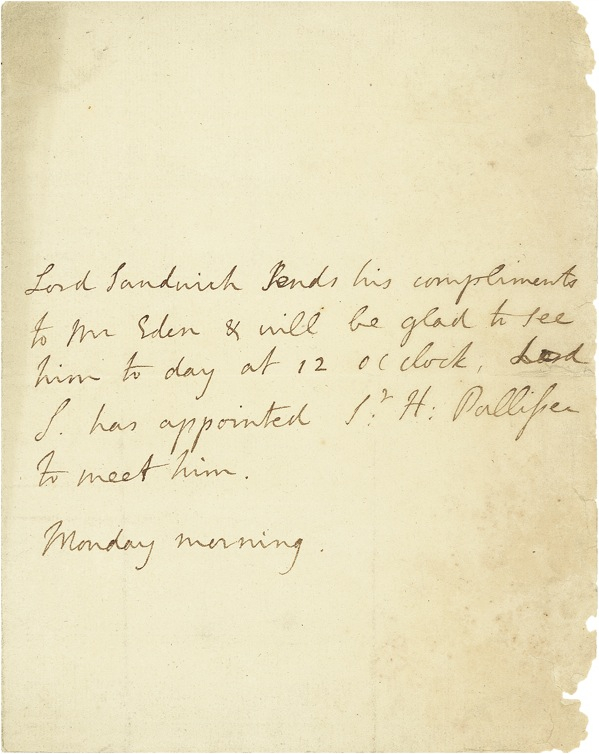 Lord Sandwich sends his compliments
to Mr Eden & will be glad to see
him to day at 12 o Clock, Lord
S. has appointed Sr H: Palliser
to meet him.
Monday morning.